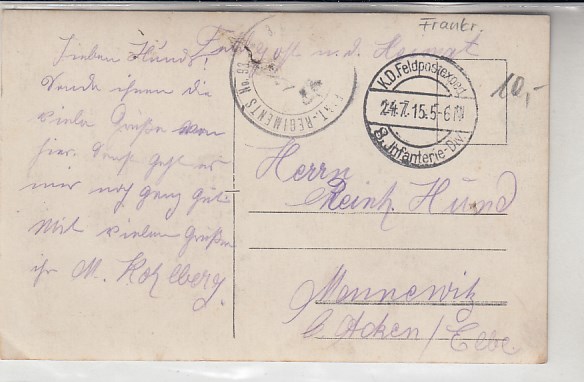 Frankr.
10,-
Lieben Hund!
Sende ihnen die
viele Grüße von
hier. Sonst geht es
mir noch ganz gut.
Mit vielen Grüßen
ihr M. Kohlberg.
n. d. Heimat
REGIMENTS No. 93
K.D. Feldpostexped.
24.7.15. 5-6 N
8. Infanterie-Div.
Herrn
Reinh. Hund
Mennewitz
b. Acken / Elbe.